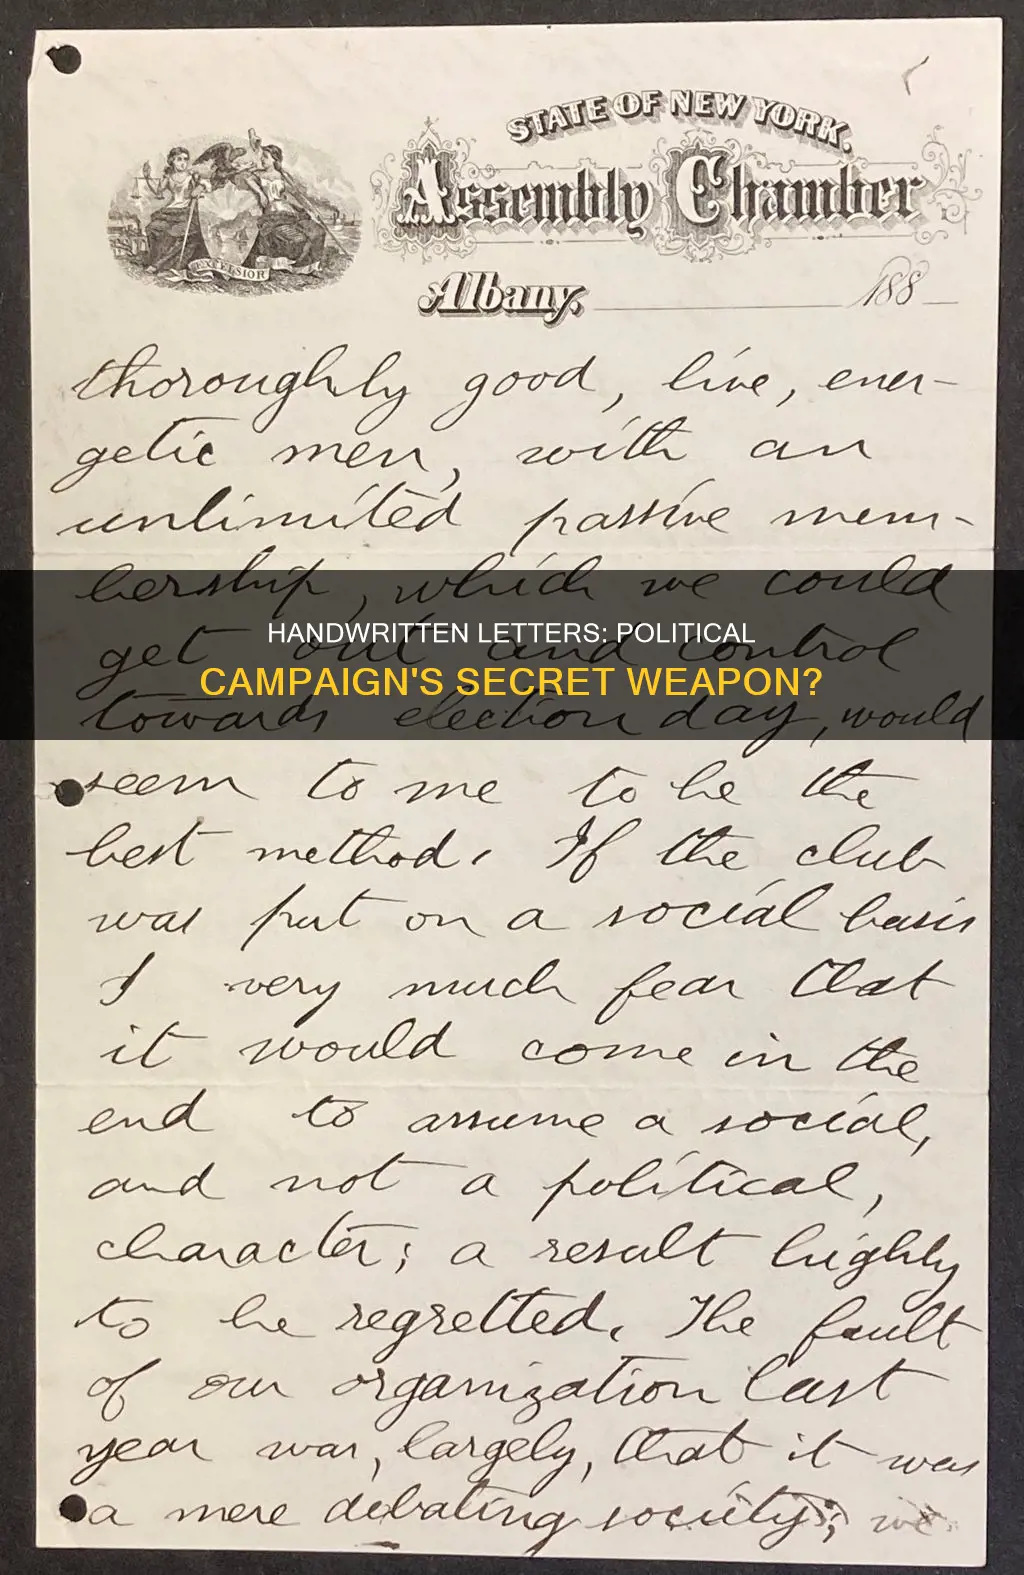 STATE OF NEW YORK.
Assembly Chamber
EXCELSIOR
Albany, 188
thoroughly good, live, ener-
getic men, with an
unlimited passive mem-
bership, which we could
get out and control
towards election day, would
HANDWRITTEN LETTERS: POLITICAL
CAMPAIGN'S SECRET WEAPON?
seem to me to be the
best method. If the club
was put on a social basis
I very much fear that
it would come in the
end to assume a social,
and not a political,
character; a result highly
to be regretted. The fault
of our organization last
year was, largely, that it was
a mere debating society; we